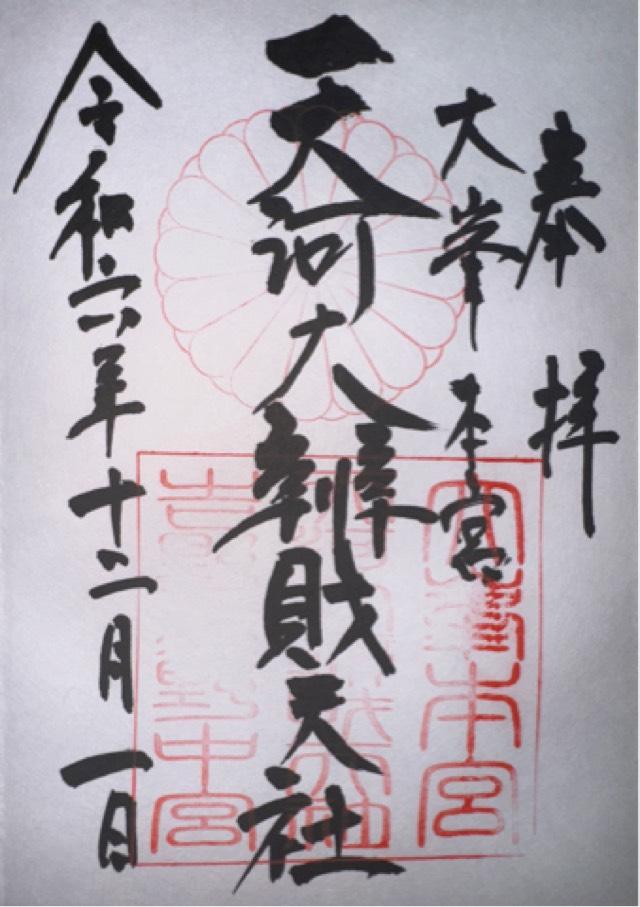 奉拝
大峯本宮
天河大辨財天社
令和六年十二月一日
本宮
中宮